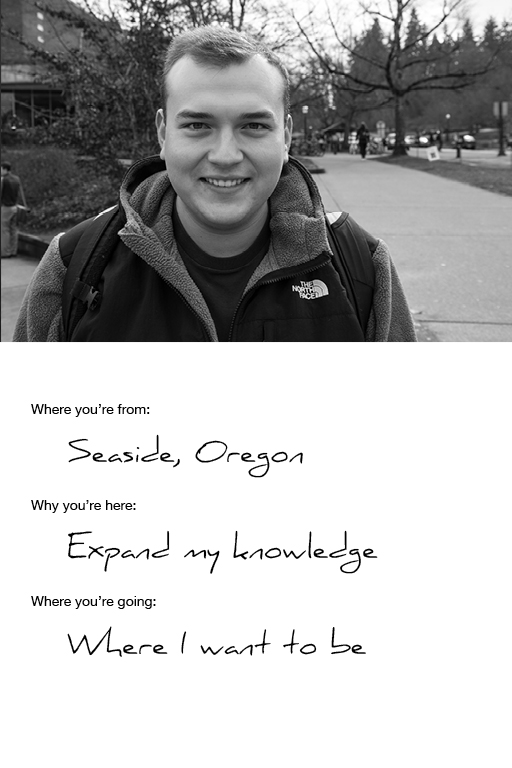 THE
NORTH
FACE
Where you're from:
Seaside, Oregon
Why you're here:
Expand my knowledge
Where you're going:
Where I want to be